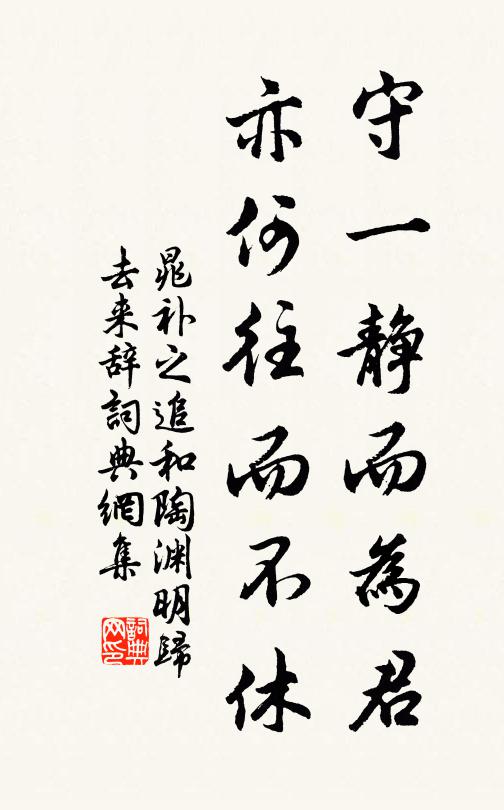 守一静而為君
亦何往而不休
晁补之追和陶渊明歸
去来辞詞典網集
詞典网印